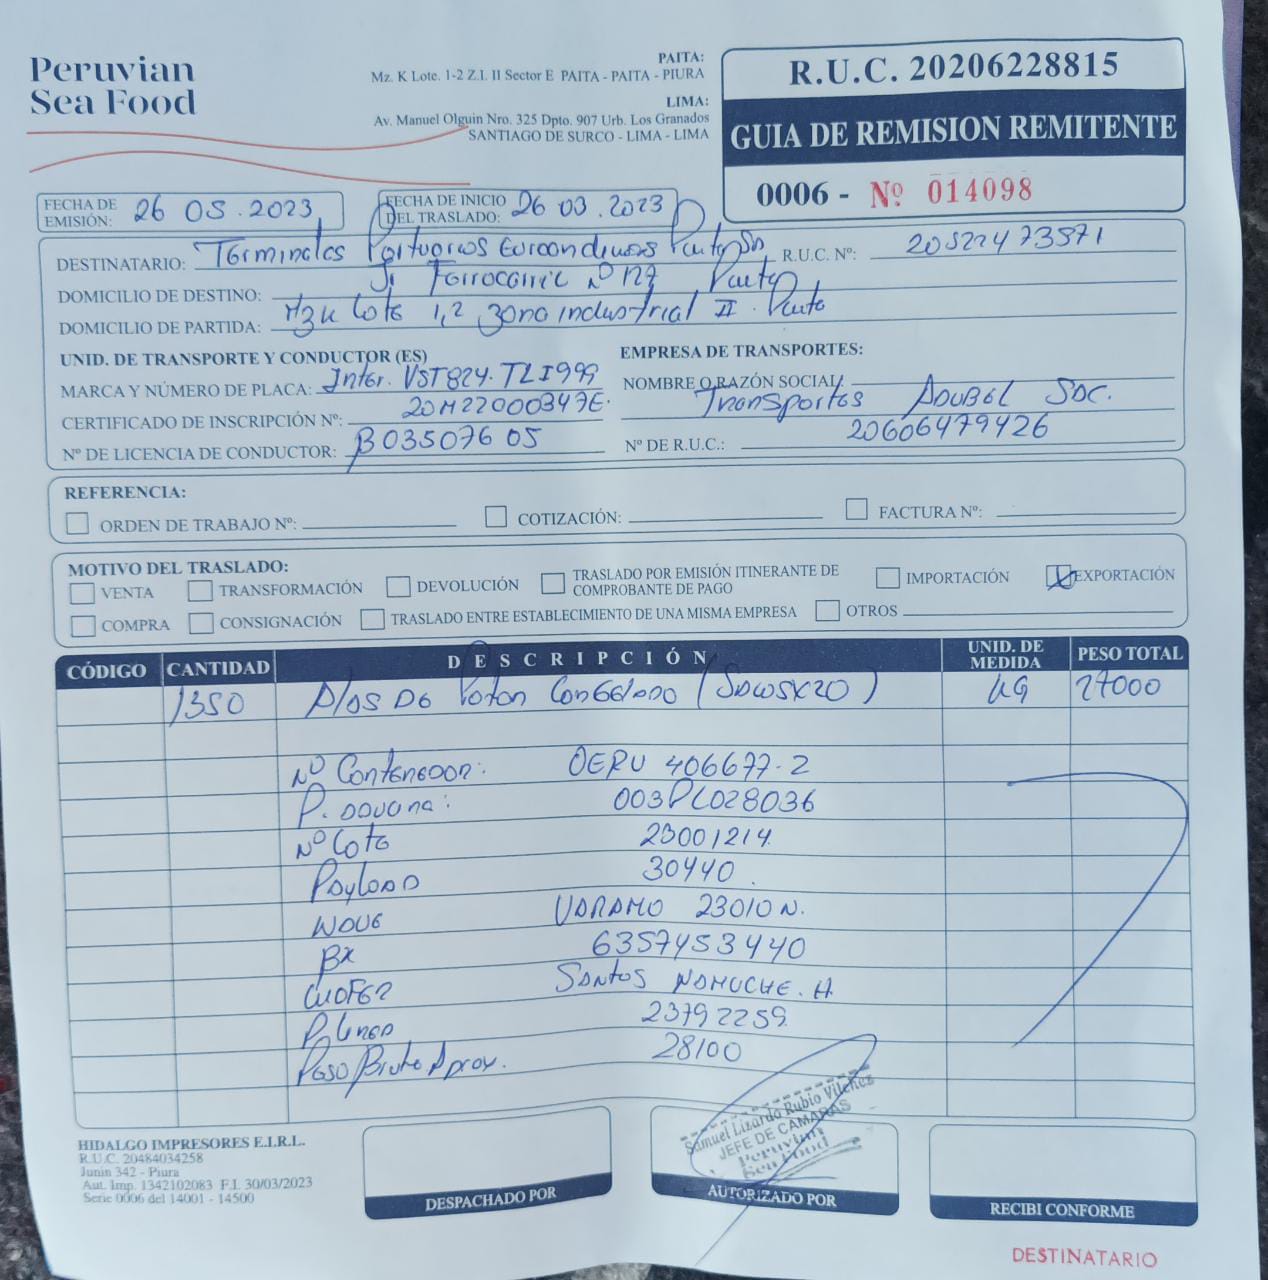 Peruvian
Sea Food
PAITA:
Mz. K Lote. 1-2 Z.I. II Sector E PAITA - PAITA - PIURA
LIMA:
Av. Manuel Olguin Nro. 325 Dpto. 907 Urb. Los Granados
SANTIAGO DE SURCO - LIMA - LIMA
R.U.C. 20206228815
GUIA DE REMISION REMITENTE
0006 - Nº 014098
FECHA DE EMISIÓN: 26 05 . 2023
FECHA DE INICIO DEL TRASLADO: 26 03 . 2023
DESTINATARIO: Terminales Portuarios Euroandinos Paita SA R.U.C. Nº: 20522473571
DOMICILIO DE DESTINO: Jr Ferrocarril Nº 127 Paita
DOMICILIO DE PARTIDA: Mzk Lote 1,2 Zona industrial II . Paita
UNID. DE TRANSPORTE Y CONDUCTOR (ES)
MARCA Y NÚMERO DE PLACA: Inter. VST824. TLI999
CERTIFICADO DE INSCRIPCIÓN Nº: 20M22000347E.
Nº DE LICENCIA DE CONDUCTOR: B03507605
EMPRESA DE TRANSPORTES:
NOMBRE O RAZÓN SOCIAL: Transportes ADUBEL SAC.
Nº DE R.U.C.: 20606479426
REFERENCIA:
ORDEN DE TRABAJO Nº: COTIZACIÓN: FACTURA Nº:
MOTIVO DEL TRASLADO:
VENTA TRANSFORMACIÓN DEVOLUCIÓN TRASLADO POR EMISIÓN ITINERANTE DE COMPROBANTE DE PAGO IMPORTACIÓN EXPORTACIÓN
COMPRA CONSIGNACIÓN TRASLADO ENTRE ESTABLECIMIENTO DE UNA MISMA EMPRESA OTROS
CÓDIGO CANTIDAD DESCRIPCIÓN UNID. DE MEDIDA PESO TOTAL
1350 Alas De Poton Congelado (SACOSX20) KG 27000
Nº Contenedor: OERU 406677-2
P. aduana: 003PL028036
Nº Lote 23001214
Payload 30440
Nave VARAMO 23010 N.
BK 6357453440
CHOFER Santos NAMUCHE. H
P. Linea 23792259
Peso Bruto Aprox. 28100
Samuel Lizardo Rubio Vilchez
JEFE DE CAMARAS
Peruvian
Sea Food
HIDALGO IMPRESORES E.I.R.L.
R.U.C. 20484034258
Junin 342 - Piura
Aut. Imp. 1342102083 F.I. 30/03/2023
Serie 0006 del 14001 - 14500
DESPACHADO POR
AUTORIZADO POR
RECIBI CONFORME
DESTINATARIO